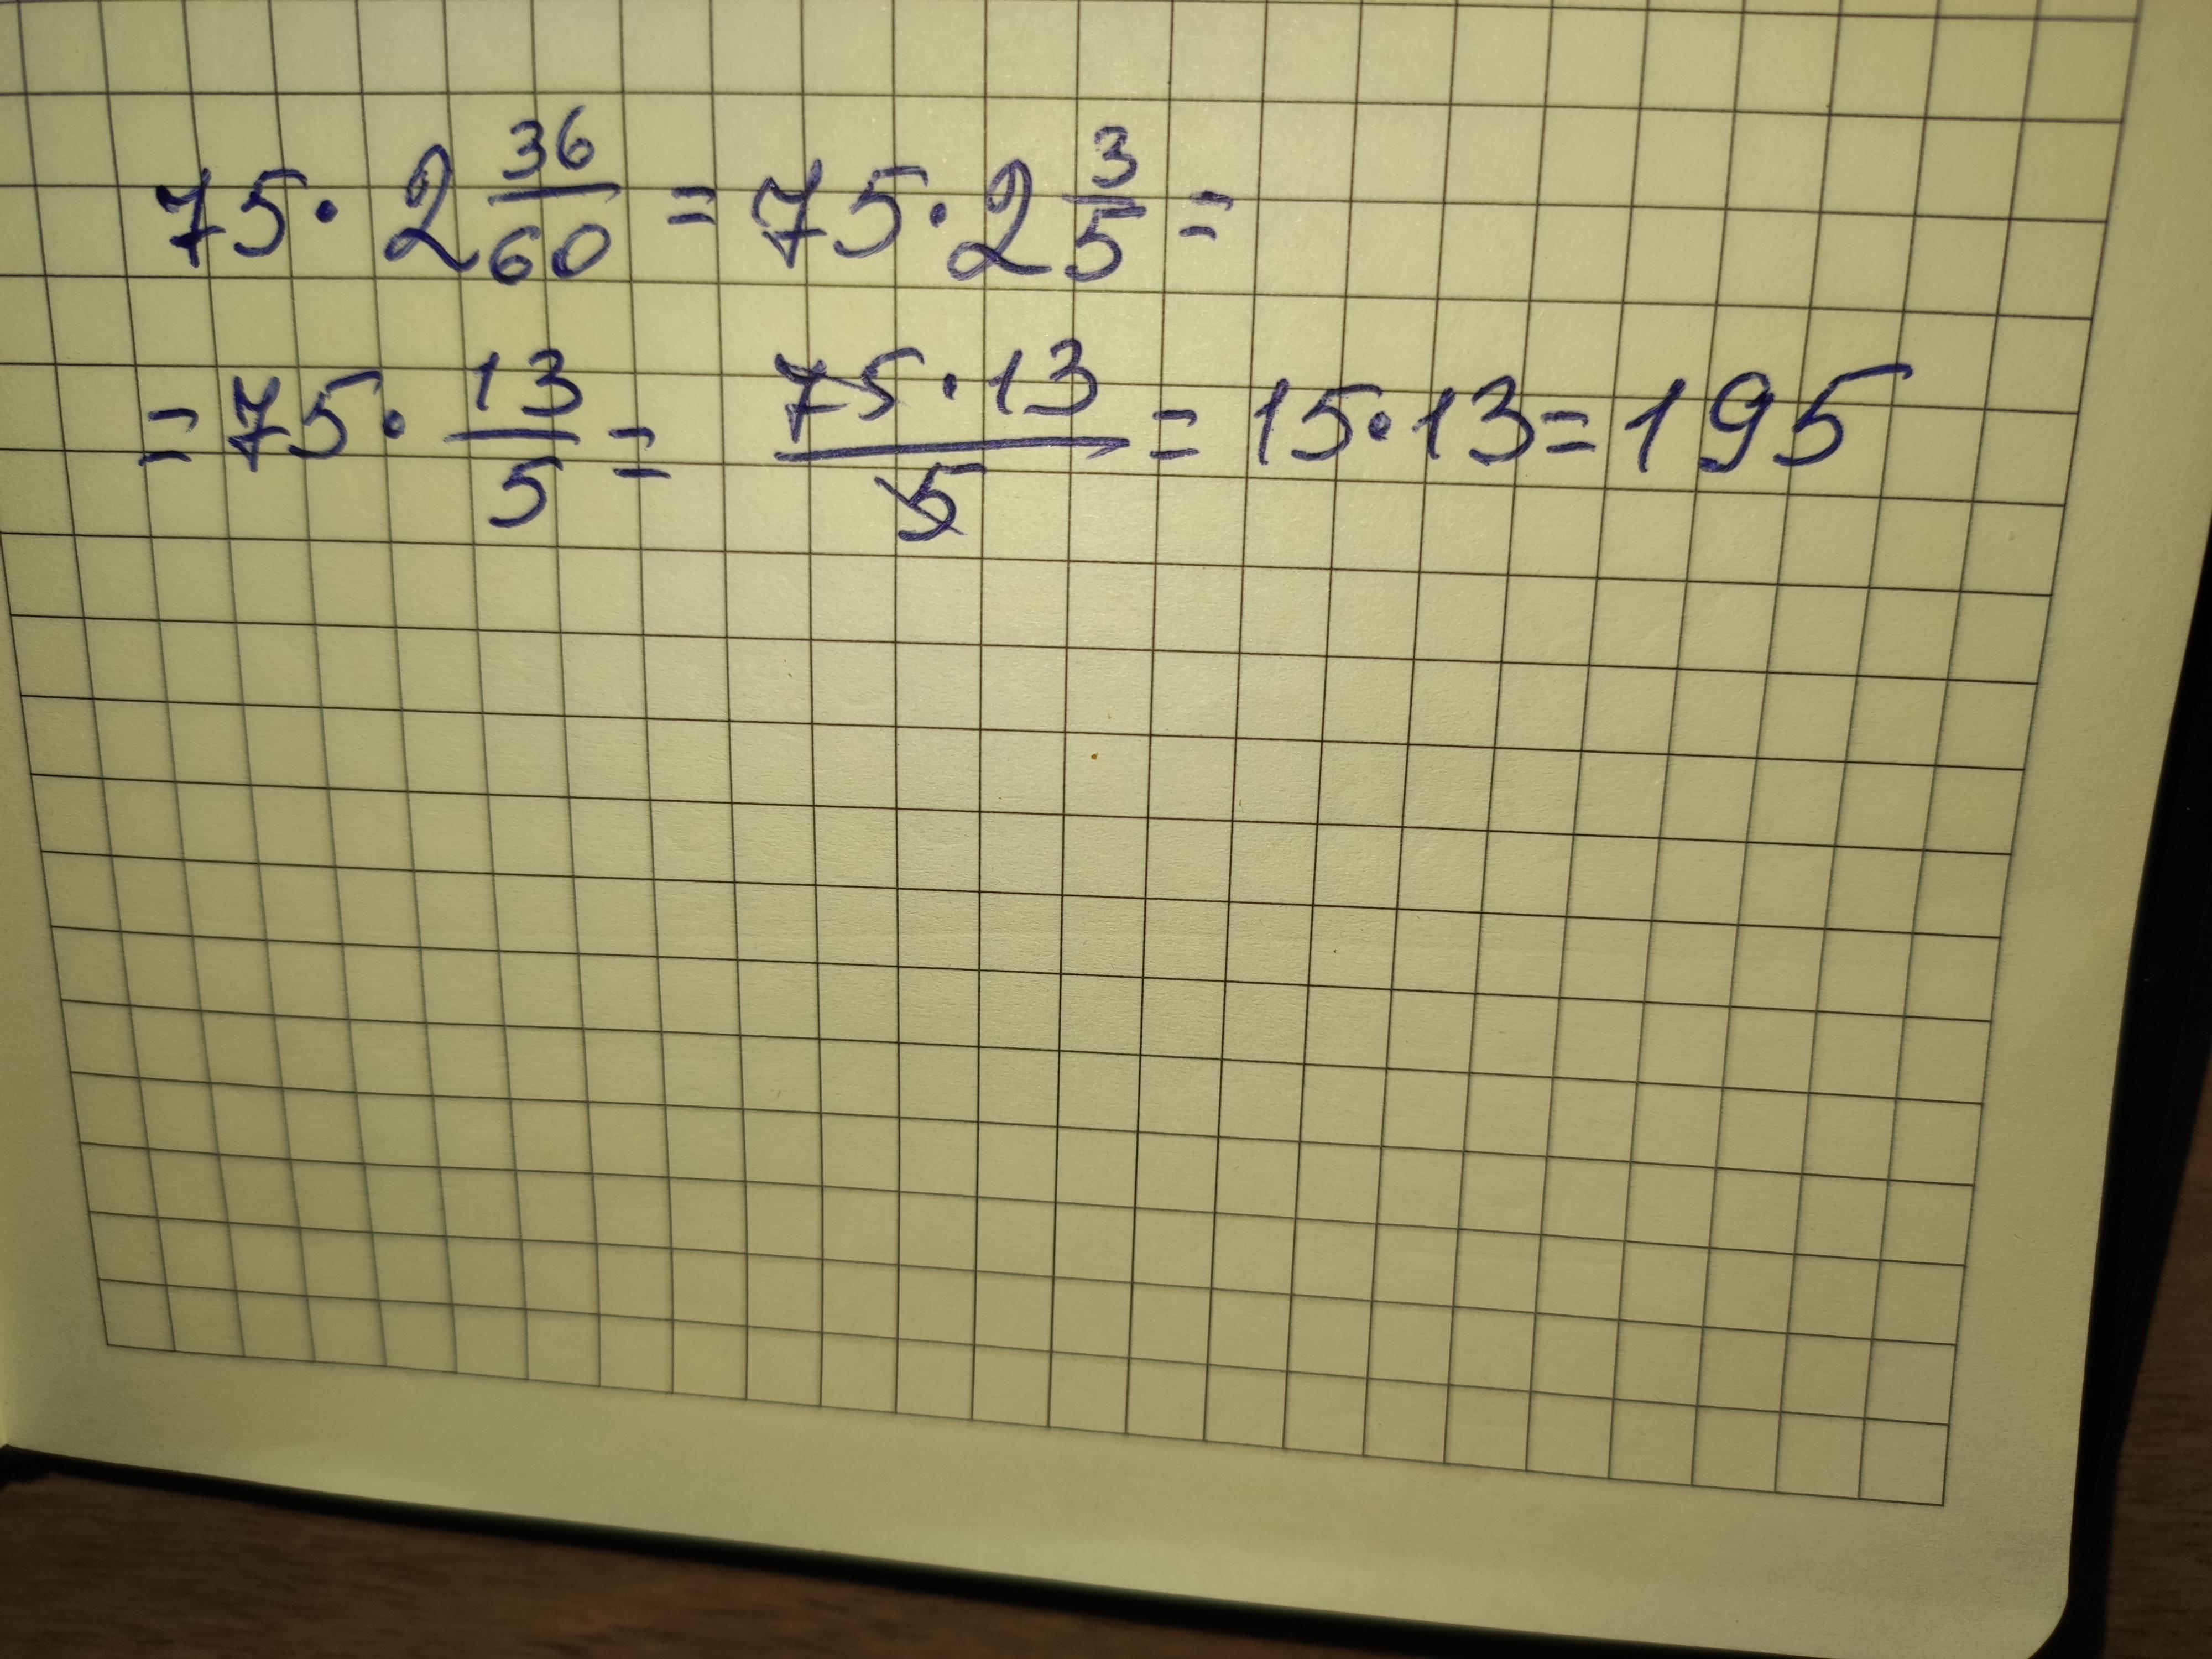 75 · 2 36/60 = 75 · 2 3/5 =
= 75 · 13/5 = 75 · 13/5 = 15 · 13 = 195